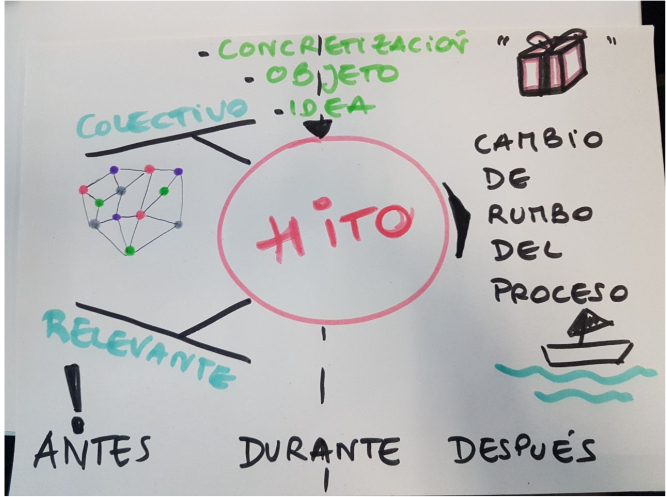 - CONCRETIZACIÓN
- OBJETO
- IDEA
" "
COLECTIVO
CAMBIO
DE
RUMBO
DEL
PROCESO
HITO
RELEVANTE
!
ANTES DURANTE DESPUÉS